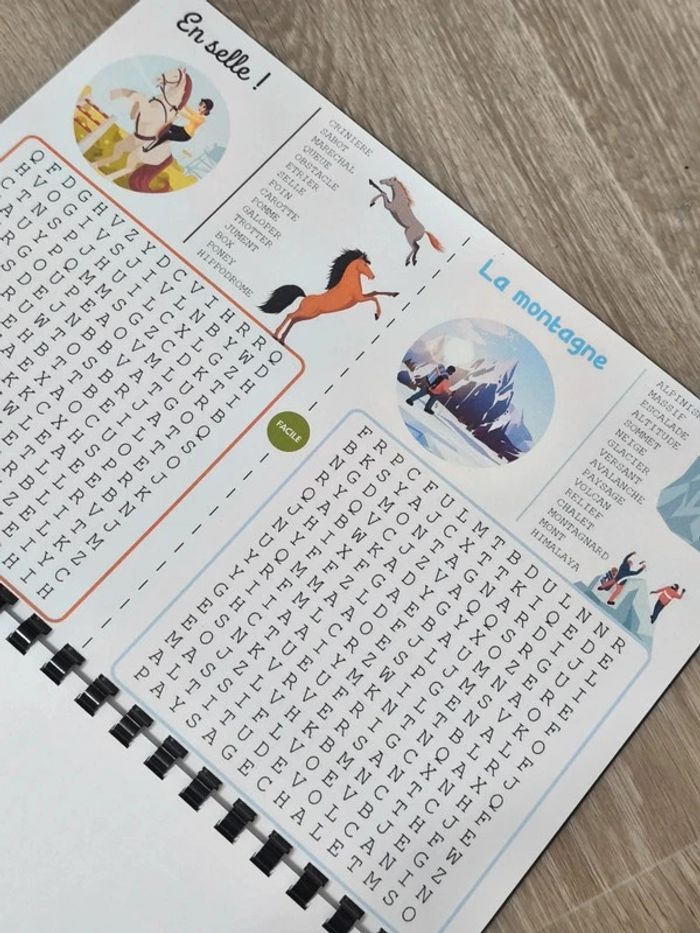 En selle !
CRINIERE
SABOT
MARECHAL
QUEUE
OBSTACLE
ETRIER
SELLE
FOIN
CAROTTE
POMME
GALOPER
TROTTER
JUMENT
BOX
PONEY
HIPPODROME
Q F D G H V Z Y D C V I H R R Q
H V O G I V S J I V L N B Y W D
C T N S I J H U I L C X L G Z H
A U Y P Q M M S G Z C D K T I
R G O U P E A O V M L U R B
S D E J N B B V A T G O Q
R U W T O S B R J A T S
E H B T T B E I L T O
A E X A O C U O E J
K K C X H S P R K
W L E A E E B N
E L L L R V J
R B L I T M
Z E L K Z
E I Y C
H I H
FACILE
La montagne
MASSIF
ESCALADE
ALTITUDE
SOMMET
NEIGE
GLACIER
VERSANT
AVALANCHE
PAYSAGE
VOLCAN
RELIEF
CHALET
MONTAGNARD
MONT
HIMALAYA
F R P C F U L M T B D U L N N R
B K S Y A J C X T T K I Q E D E
N G D M O N T A G N A R D I J L
R Y Q V C J Z V A Q Q S R G U I
Q A B W K A D Y G Y X O Z E R E
J H I X F G A E B A U M N A O F
N Y F F Z L D F J L J M S V K O
U Q M M A A O E S P G E N A L F
Y R F M L C R Z W I L T B L R J
Y I I A A I Y M K N T N Q A X Q
G H C T U E U F R I G C X N H F
E S N K V R V E R S A N T C J E
E O J Z L V H K B M N C T H F W
M A S S I F L V O E V B J E G Z
A L T I T U D E V O L C A N I N
P A Y S A G E C H A L E T M S O